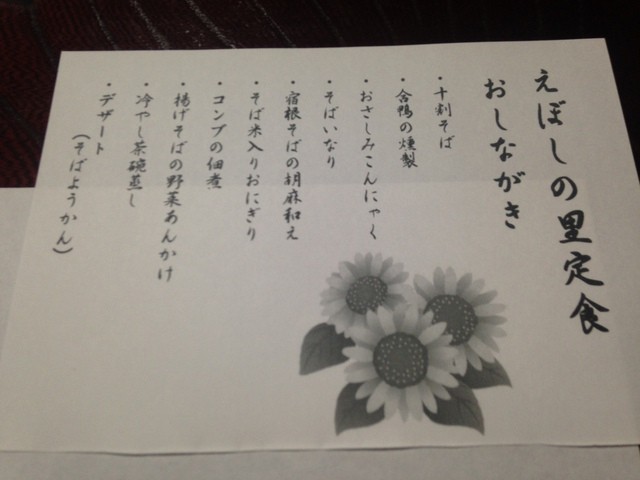 えぼしの里定食
おしながき
・十割そば
・合鴨の燻製
・おさしみこんにゃく
・そばいなり
・宿根そばの胡麻和え
・そば米入りおにぎり
・コンブの佃煮
・揚げそばの野菜あんかけ
・冷やし茶碗蒸し
・デザート
（そばようかん）